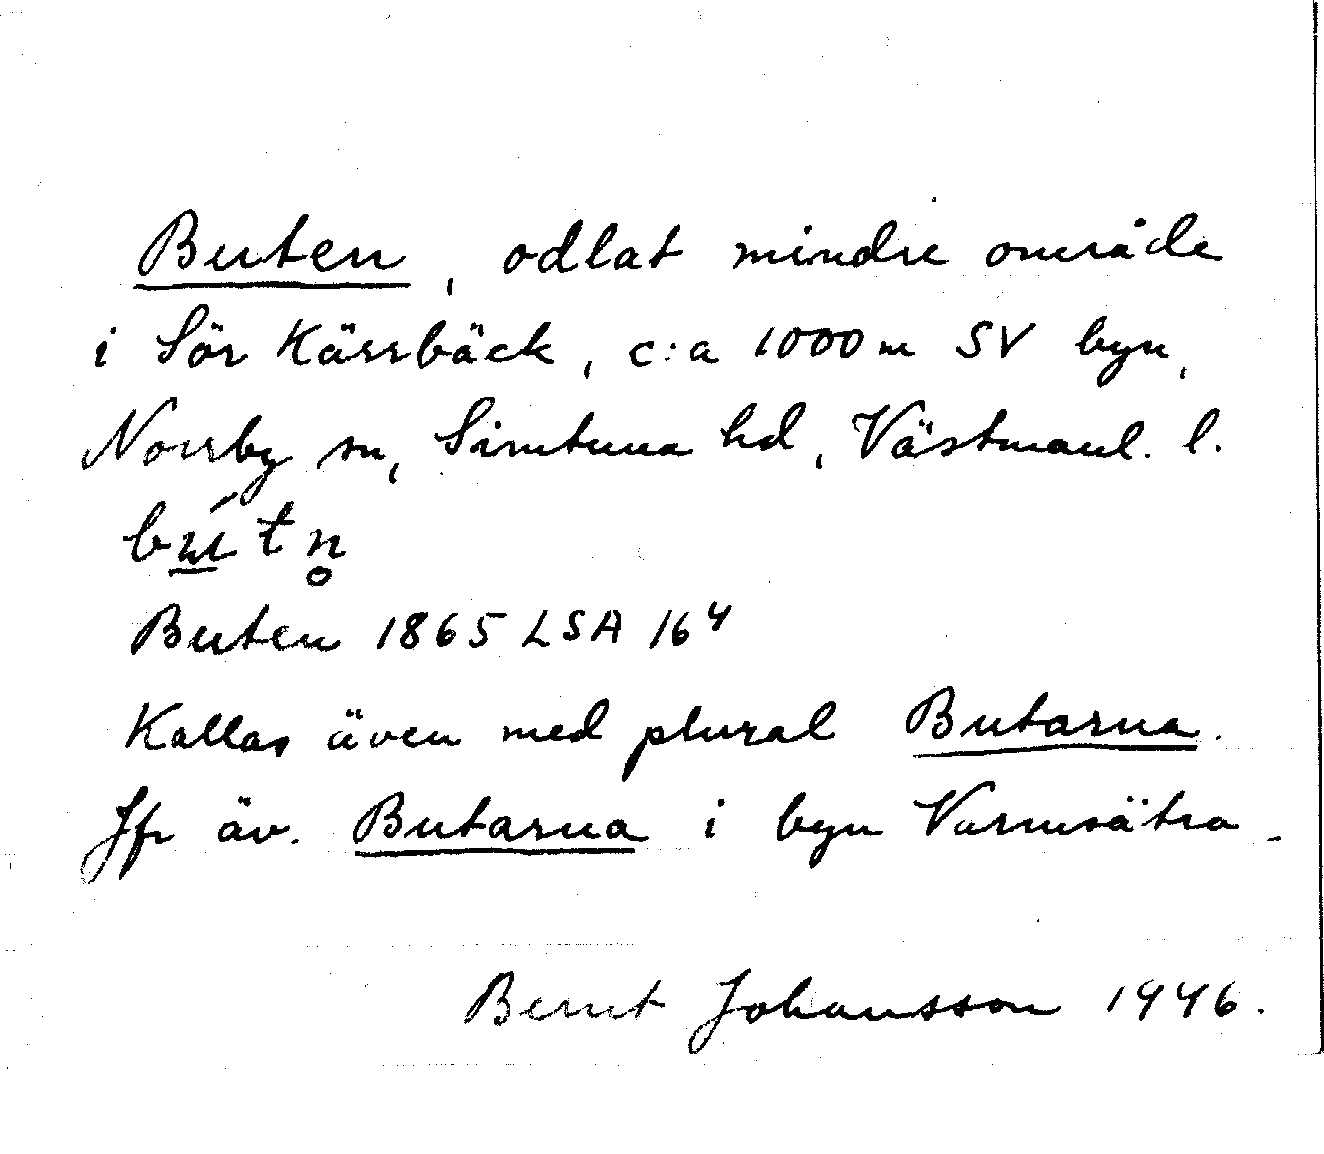 Buten, odlat mindre område
i Sör Kärrbäck, c:a 1000 m SV byn,
Norrby sn, Simtuna hd, Västmanl. l.
bú̲tn̥
Buten 1865 LSA 16⁴
Kallas även med plural Butarna.
Jfr äv. Butarna i byn Varmsätra.
Bernt Johansson 1946.